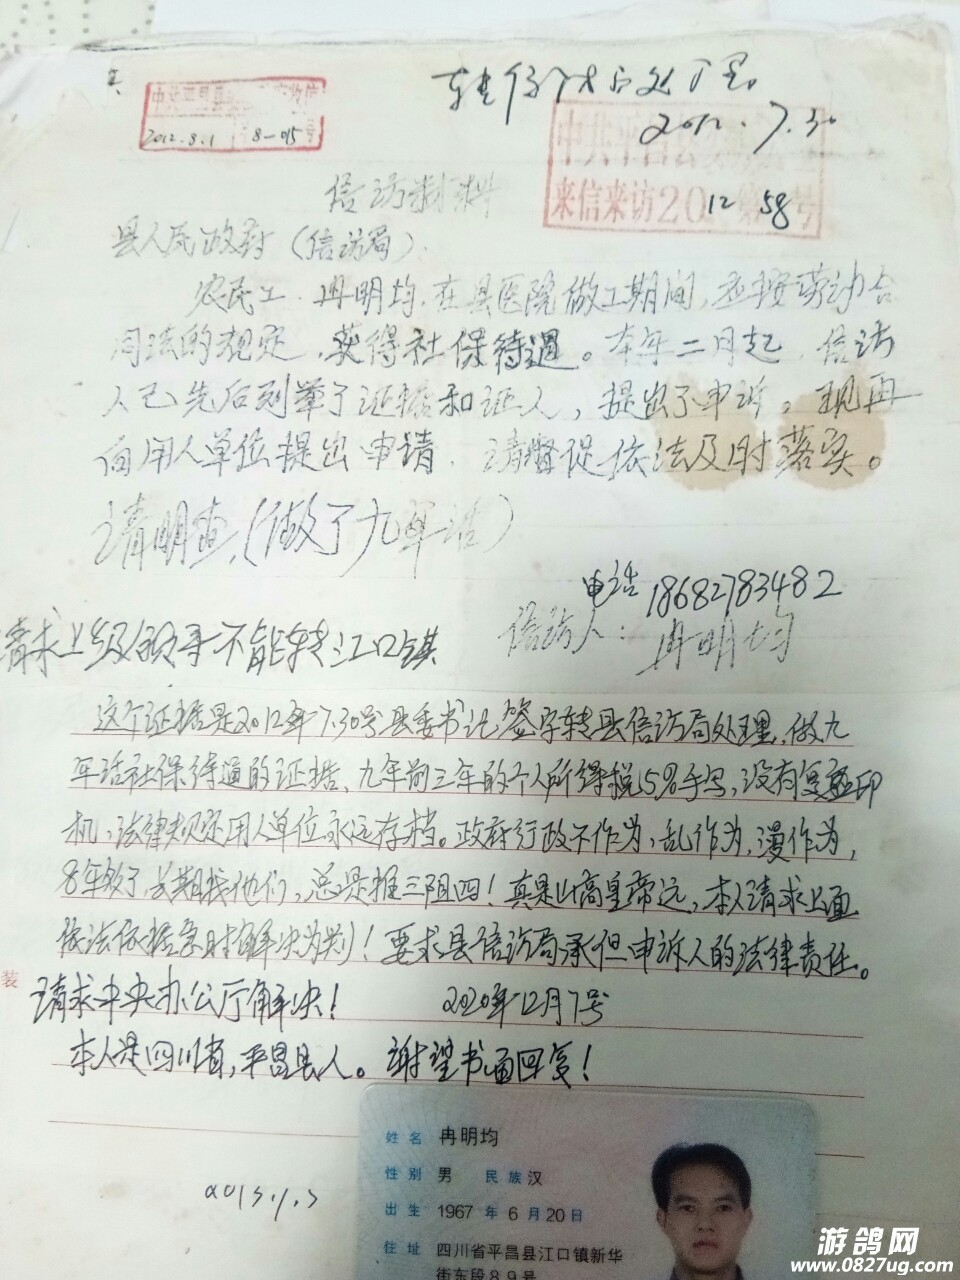 转信访局处理
2012.7.30
2012.8.1 8-015号
来信来访2012第58号
信访材料
县人民政府(信访局).
农民工.冉明均.在县医院做工期间,应按劳动合
同法的规定,获得社保待遇。本年二月起.信访
人已先后列举了证据和证人,提出了申诉。现再
向用人单位提出申请.请督促依法及时落实。
请明查.(做了九年活)
电话18682783482
信访人:冉明均
请求上级领导不能转江口镇
这个证据是2012年7.30号县委书记签字转县信访局处理,做九
年活社保待遇的证据、九年前三年的个人所得税5%手写,没有复印
机,法律规定用人单位永远存档。政府行政不作为,乱作为,漫作为,
8年多了长期找他们,总是推三阻四!真是山高皇帝远,本人请求上面
依法依据急时解决为盼!要求县信访局承但申诉人的法律责任。
装
请求中央办公厅解决! 2020年12月7号
本人是四川省,平昌县人。谢望书面回复!
2013.1.3
姓名 冉明均
性别 男 民族汉
出生 1967 年 6 月 20 日
住址 四川省平昌县江口镇新华
街东段89号
游鸽网
www.0827ug.com